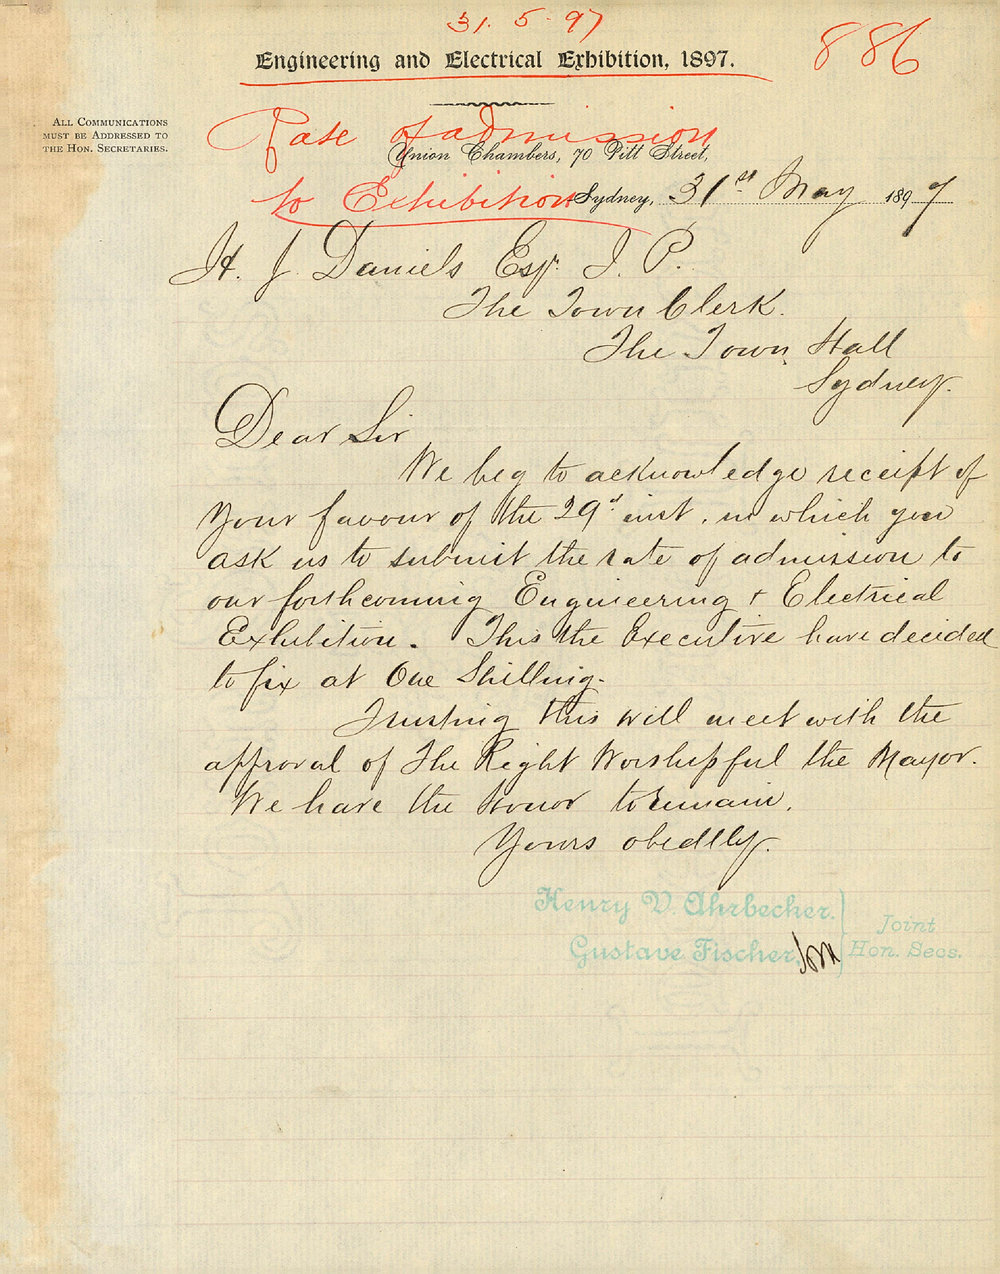 31. 5. 97
886
Engineering and Electrical Exhibition, 1897.
All Communications
must be Addressed to
the Hon. Secretaries.
Rate of admission
to Exhibition
Union Chambers, 70 Pitt Street,
Sydney, 31st May 1897
H. J. Daniels Esqr. J. P.
The Town Clerk.
The Town Hall
Sydney.
Dear Sir
We beg to acknowledge receipt of
your favour of the 29d inst. in which you
ask us to submit the rate of admission to
our forthcoming Engineering + Electrical
Exhibition. This the Executive have decided
to fix at One Shilling.
Trusting this will meet with the
approval of The Right Worshipful the Mayor.
We have the Honor to remain.
Yours obedtly.
Henry V. Ahrbecker.
Gustave Fischer.
Joint
Hon. Secs.